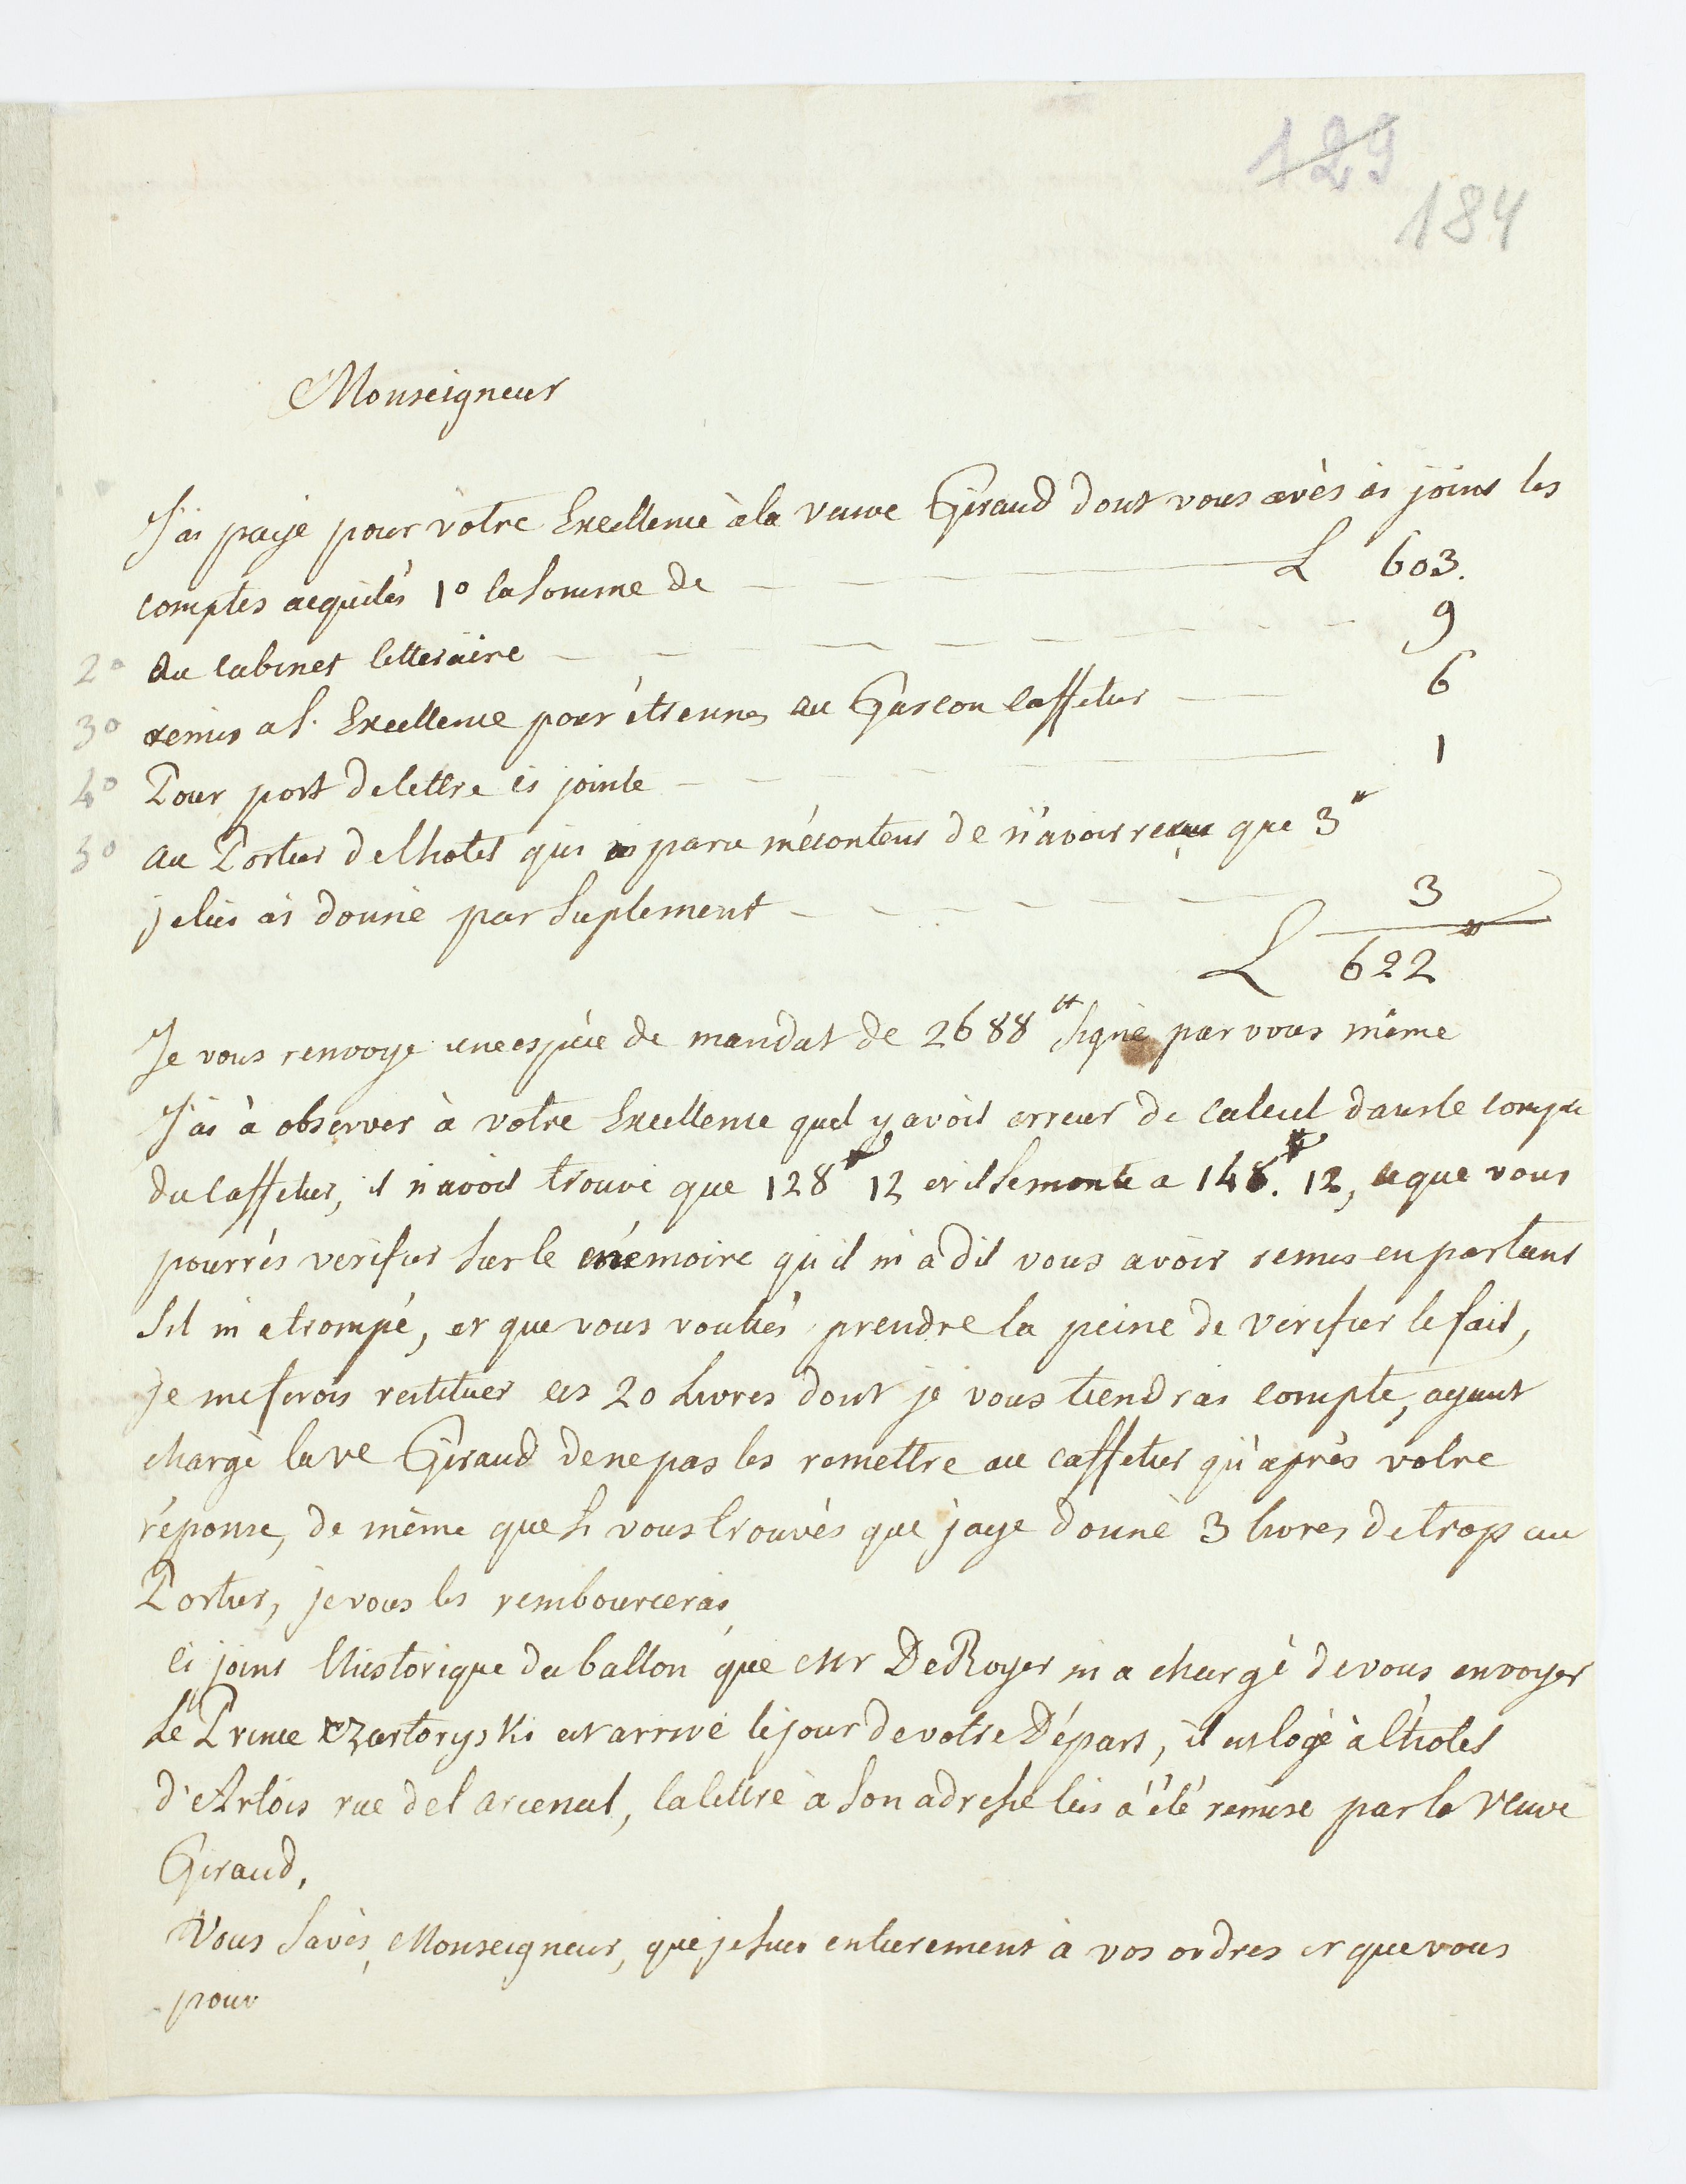 129
184
Monseigneur
J'ai payé pour votre Excellence à la veuve Giraud dont vous avés ci joint les
comptes acquités 1º la Somme de — — — L 603.
2º au Cabinet litteraire — — — — — — 9
3º remis a S. Excellence pour étrennes au Garcon Caffetier — — 6
4º Pour port de lettre ci jointe — — — — 1
5º au Portier de lhotel qui a paru mécontent de n'avoir reçu que 3#
je lui ai donné par Suplement — — — — — 3
L 622#
Je vous renvoye une espèce de mandat de 2688# Signé par vous même
J'ai à observer à votre Excellence quil y avoit erreur de Calcul dans le Compte
du Caffetier, il n'avoit trouvé que 128# 12 et il Se monte a 148.# 12, ce que vous
pourrés verifier Sur le mémoire qu'il m'a dit vous avoir remis en partant
Sil m'a trompé, et que vous vouliés prendre la peine de verifier le fait,
Je me ferois restituer ces 20 Livres dont je vous tiendrai Compte, ayant
chargé la ve Giraud de ne pas les remettre au Caffetier qu'après votre
réponse, de même que Si vous trouvés que j'aye donné 3 livres de trop au
Portier, je vous les rembourcerai
Ci joint lhistorique du ballon que Mr De Royer m'a chargé de vous envoyer
Le Prince Czartoryski est arrivé le jour de votre Départ, il est logé à l'hotel
d'Artois rue de l'arcenal, la lettre à Son adresse lui a été remise par la Veuve
Giraud,
Vous Savés, Monseigneur, que je Suis entierement à vos ordres et que vous
pouv